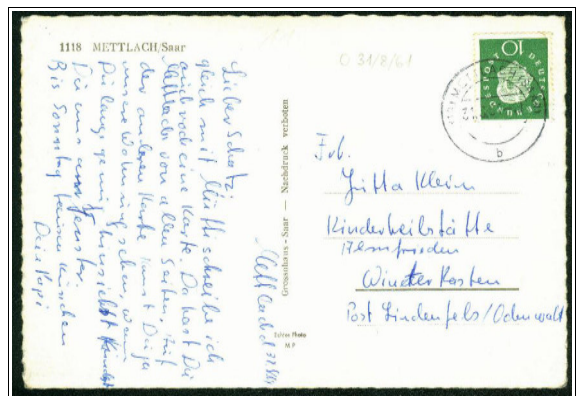 1118 METTLACH/Saar
O 31/8/61
DEUTSCHE BUNDESPOST
10
b
Mettlach d.
Lieber Schatz!
gleich mit Mutti schreibe ich
auch noch eine Karte Da hast Du
Mettlach von allen Seiten. Auf
der anderen Karte kannst Du ja
unsere Wohnung sehen, wenn
Du lang genug hinsiehst
Du uns am Fenster.
Bis Sonntag tausend Küsschen
Dein Papi
Grossohaus-Saar — Nachdruck verboten
Echtes Photo
M P
Frl.
Jutta Klein
Kinderheilstätte
Winterkasten
Post Lindenfels/Odenwald